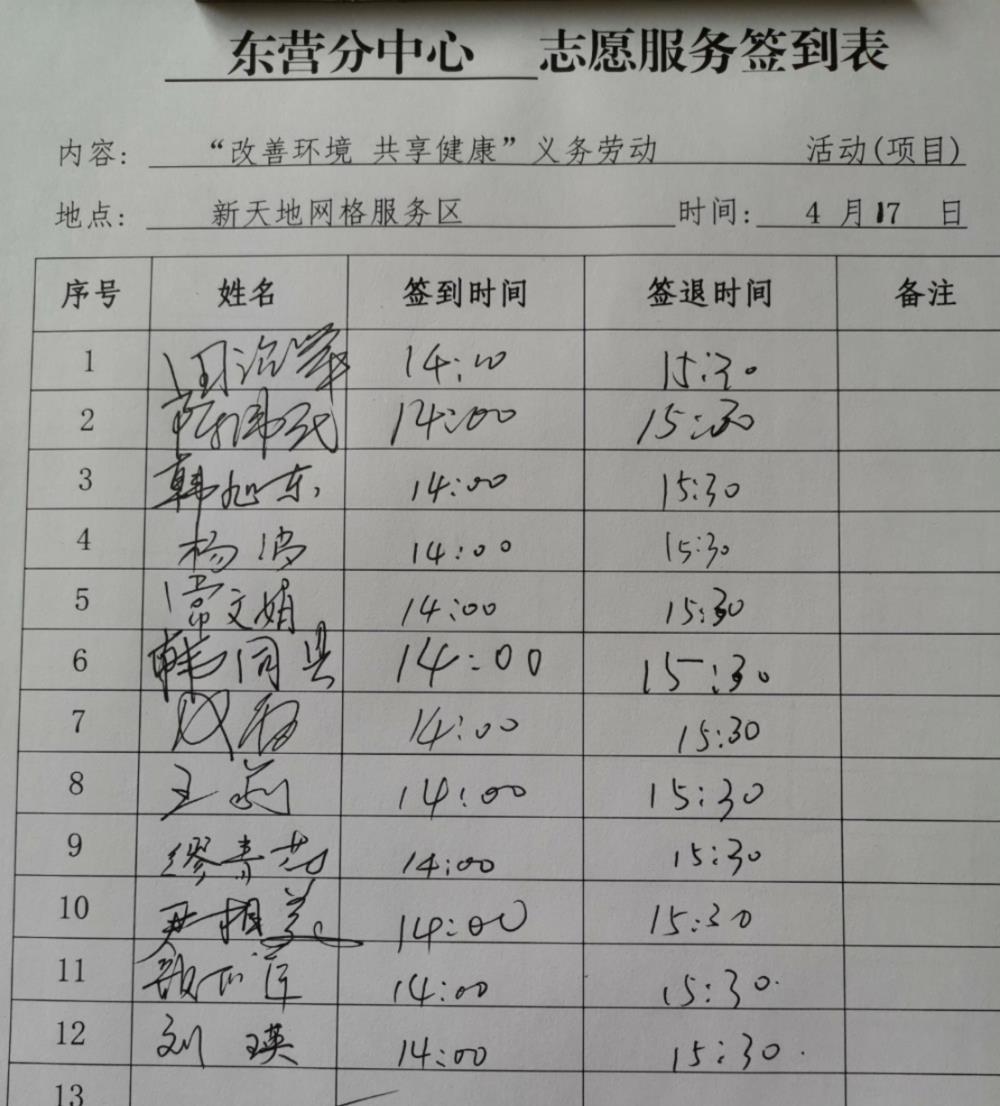 东营分中心 志愿服务签到表
内容: “改善环境 共享健康”义务劳动 活动(项目)
地点: 新天地网格服务区 时间: 4 月17 日
序号 姓名 签到时间 签退时间 备注
1 14:00 15:30
2 14:00 15:30
3 韩旭东 14:00 15:30
4 杨波 14:00 15:30
5 常文娟 14:00 15:30
6 韩同县 14:00 15:30
7 14:00 15:30
8 王莉 14:00 15:30
9 缪青芳 14:00 15:30
10 尹相美 14:00 15:30
11 14:00 15:30
12 刘瑛 14:00 15:30
13